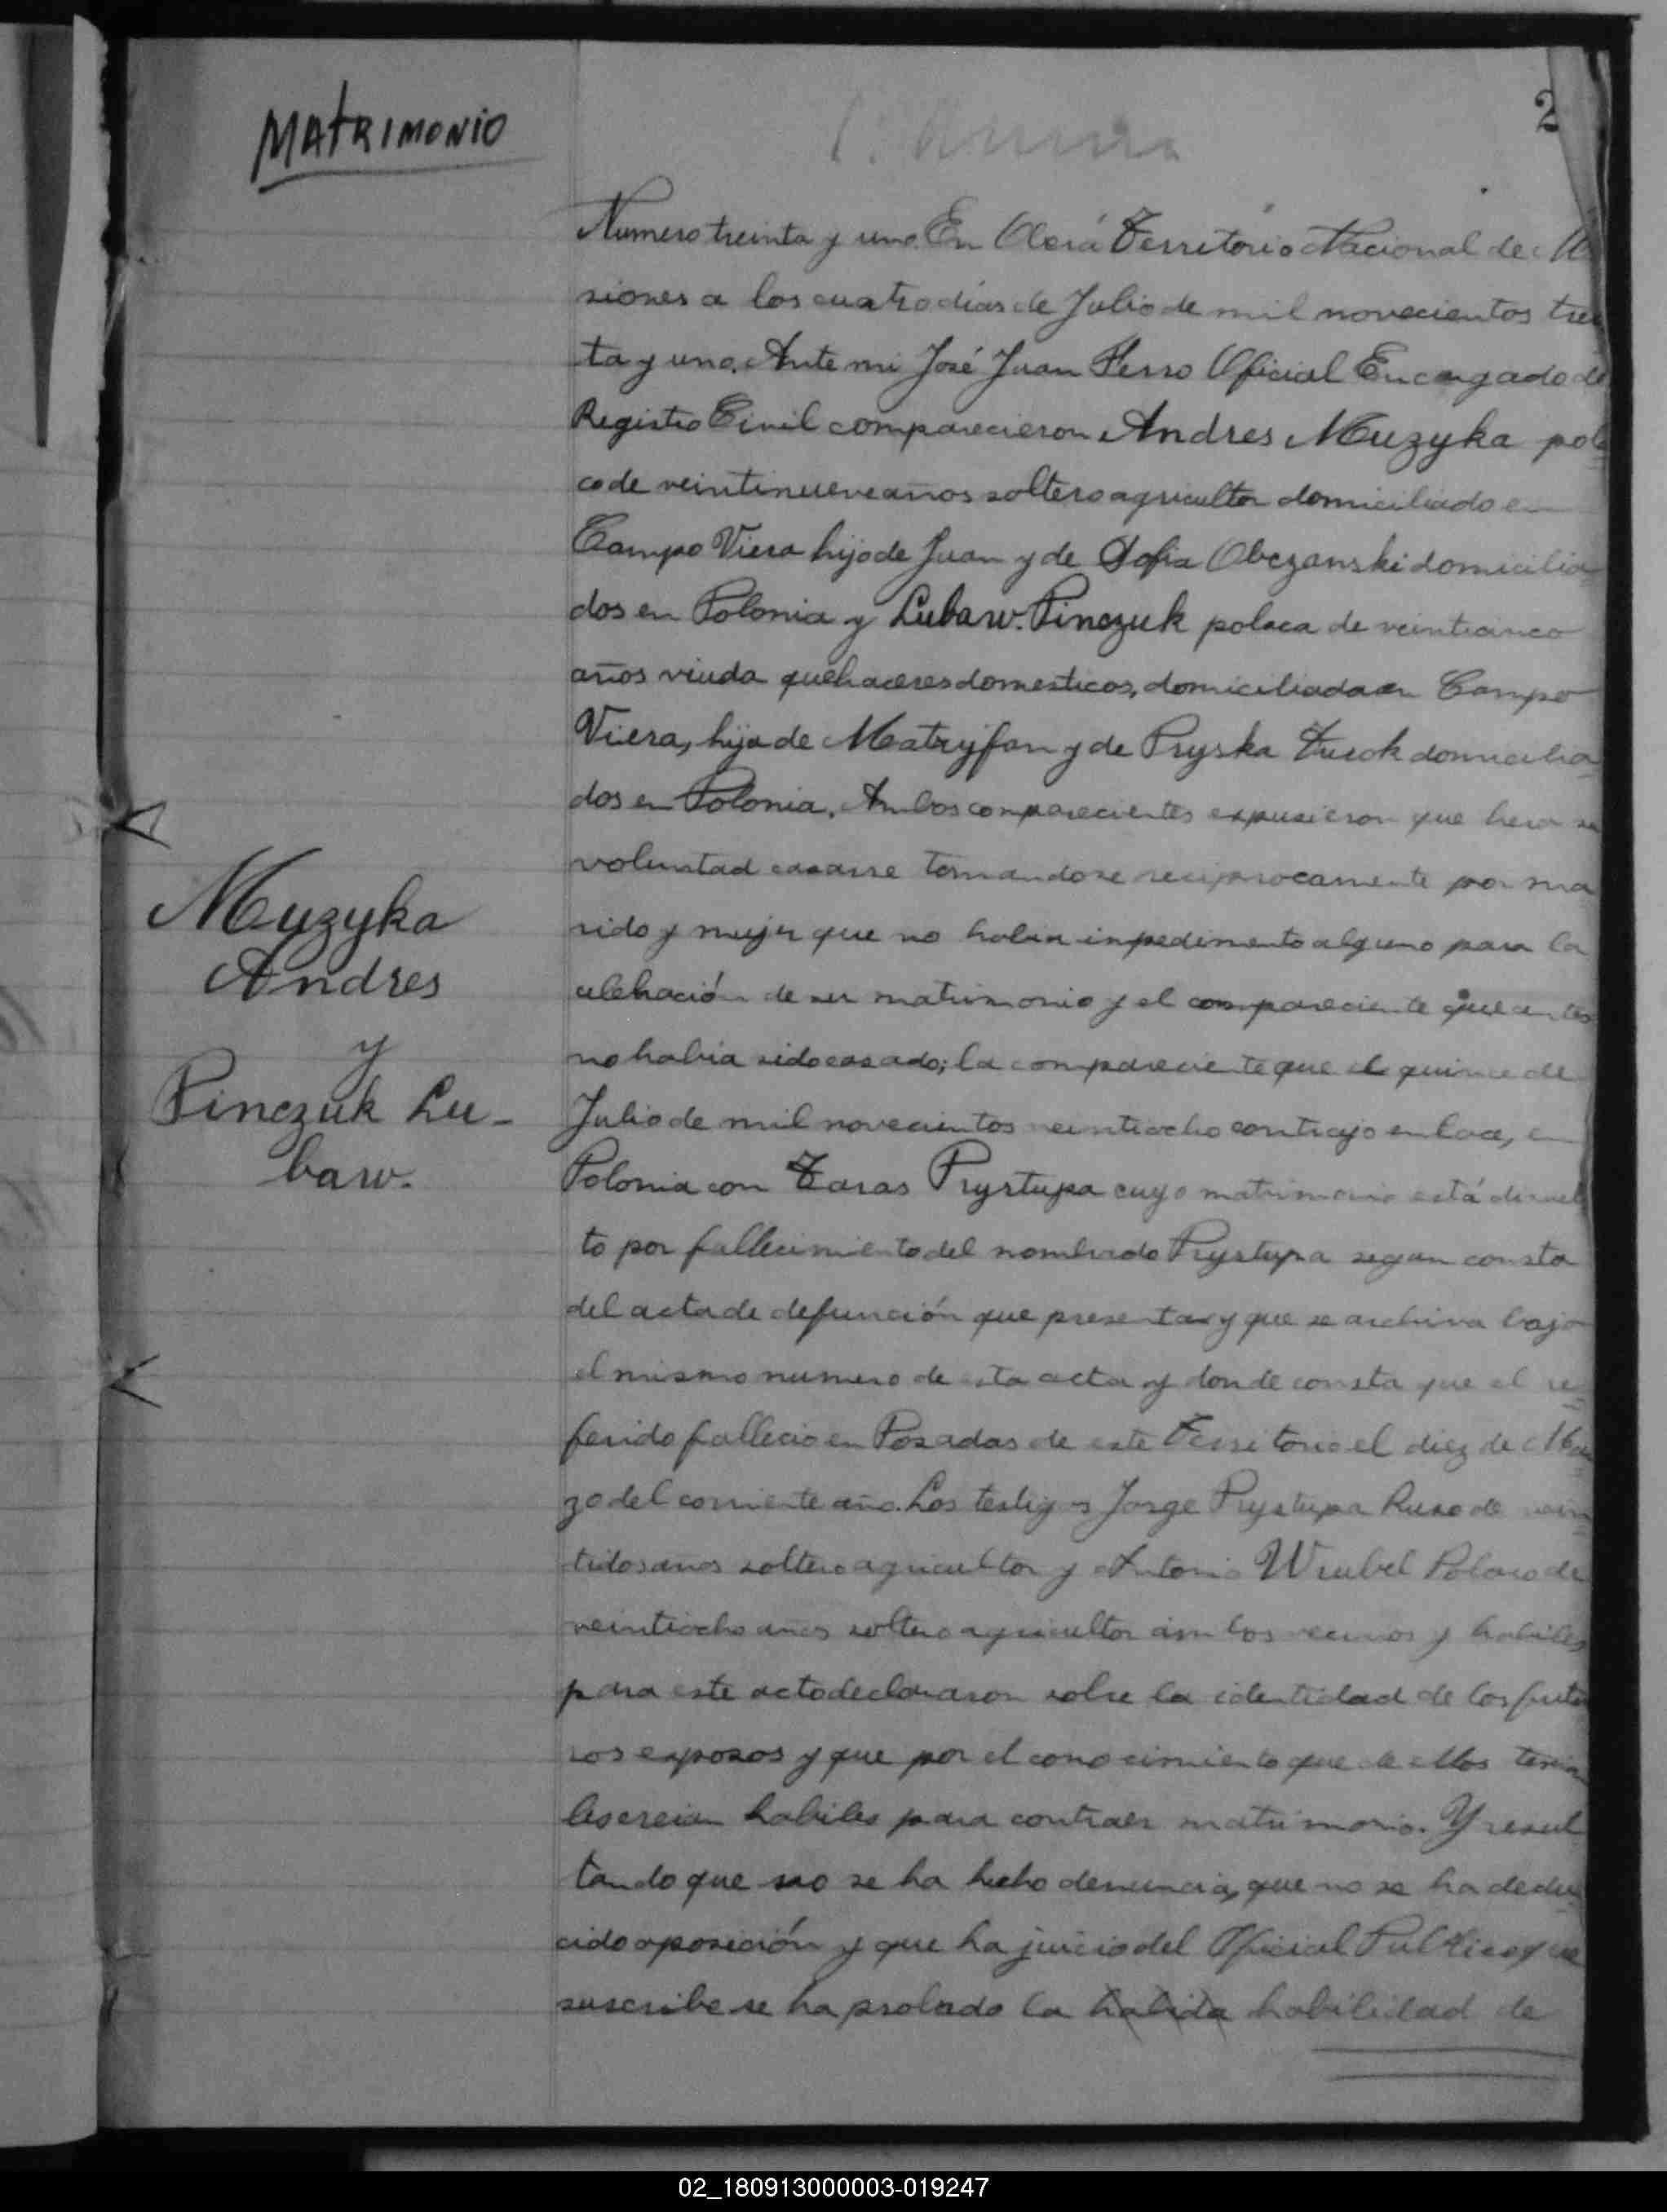 MATRIMONIO
2
Numero treinta y uno. En Oberá Territorio Nacional de Mi
siones a los cuatro dias de Julio de mil novecientos trein
ta y uno. Ante mi José Juan Ferro Oficial Encargado del
Registro Civil comparecieron Andres Muzyka pola
co de veintinueve años soltero agricultor domiciliado en
Campo Viera hijo de Juan y de Sofia Obczanski domicilia
dos en Polonia y Lubaw. Pinczuk polaca de veinticinco
años viuda quehaceres domesticos, domiciliada en Campo
Viera, hija de Matryfan y de Pryska Turok domicilia
dos en Polonia. Ambos comparecientes expusieron que hera su
voluntad casarse tomandose reciprocamente por ma
rido y mujer que no habia inpedimento alguno para la
celebración de su matrimonio y el compareciente que antes
no habia sido casado; la compareciente que el quince de
Julio de mil novecientos veintiocho contrajo enlace, en
Polonia con Taras Prystupa cuyo matrimonio está disuel
to por fallecimiento del nombrado Prystupa segun consta
del acta de defunción que presenta y que se archiva bajo
el mismo numero de esta acta y donde consta que el re
ferido fallecio en Posadas de este Territorio el diez de Mar
zo del corriente año. Los testigos Jorge Prystupa Ruso de vein
tidos años soltero agricultor y Antonio Wrubel Polaco de
veintiocho años soltero agricultor ambos vecinos y habiles
para este acto declararon sobre la identidad de los futu
ros esposos y que por el conocimiento que de ellos tenian
les creian habiles para contraer matrimonio. Y resul
tando que no se ha hecho denuncia, que no se ha dedu
cido oposición y que ha juicio del Oficial Publico que
suscribe se ha probado la habida habilidad de
Muzyka
Andres
y
Pinczuk Lu-
baw.
02_180913000003-019247